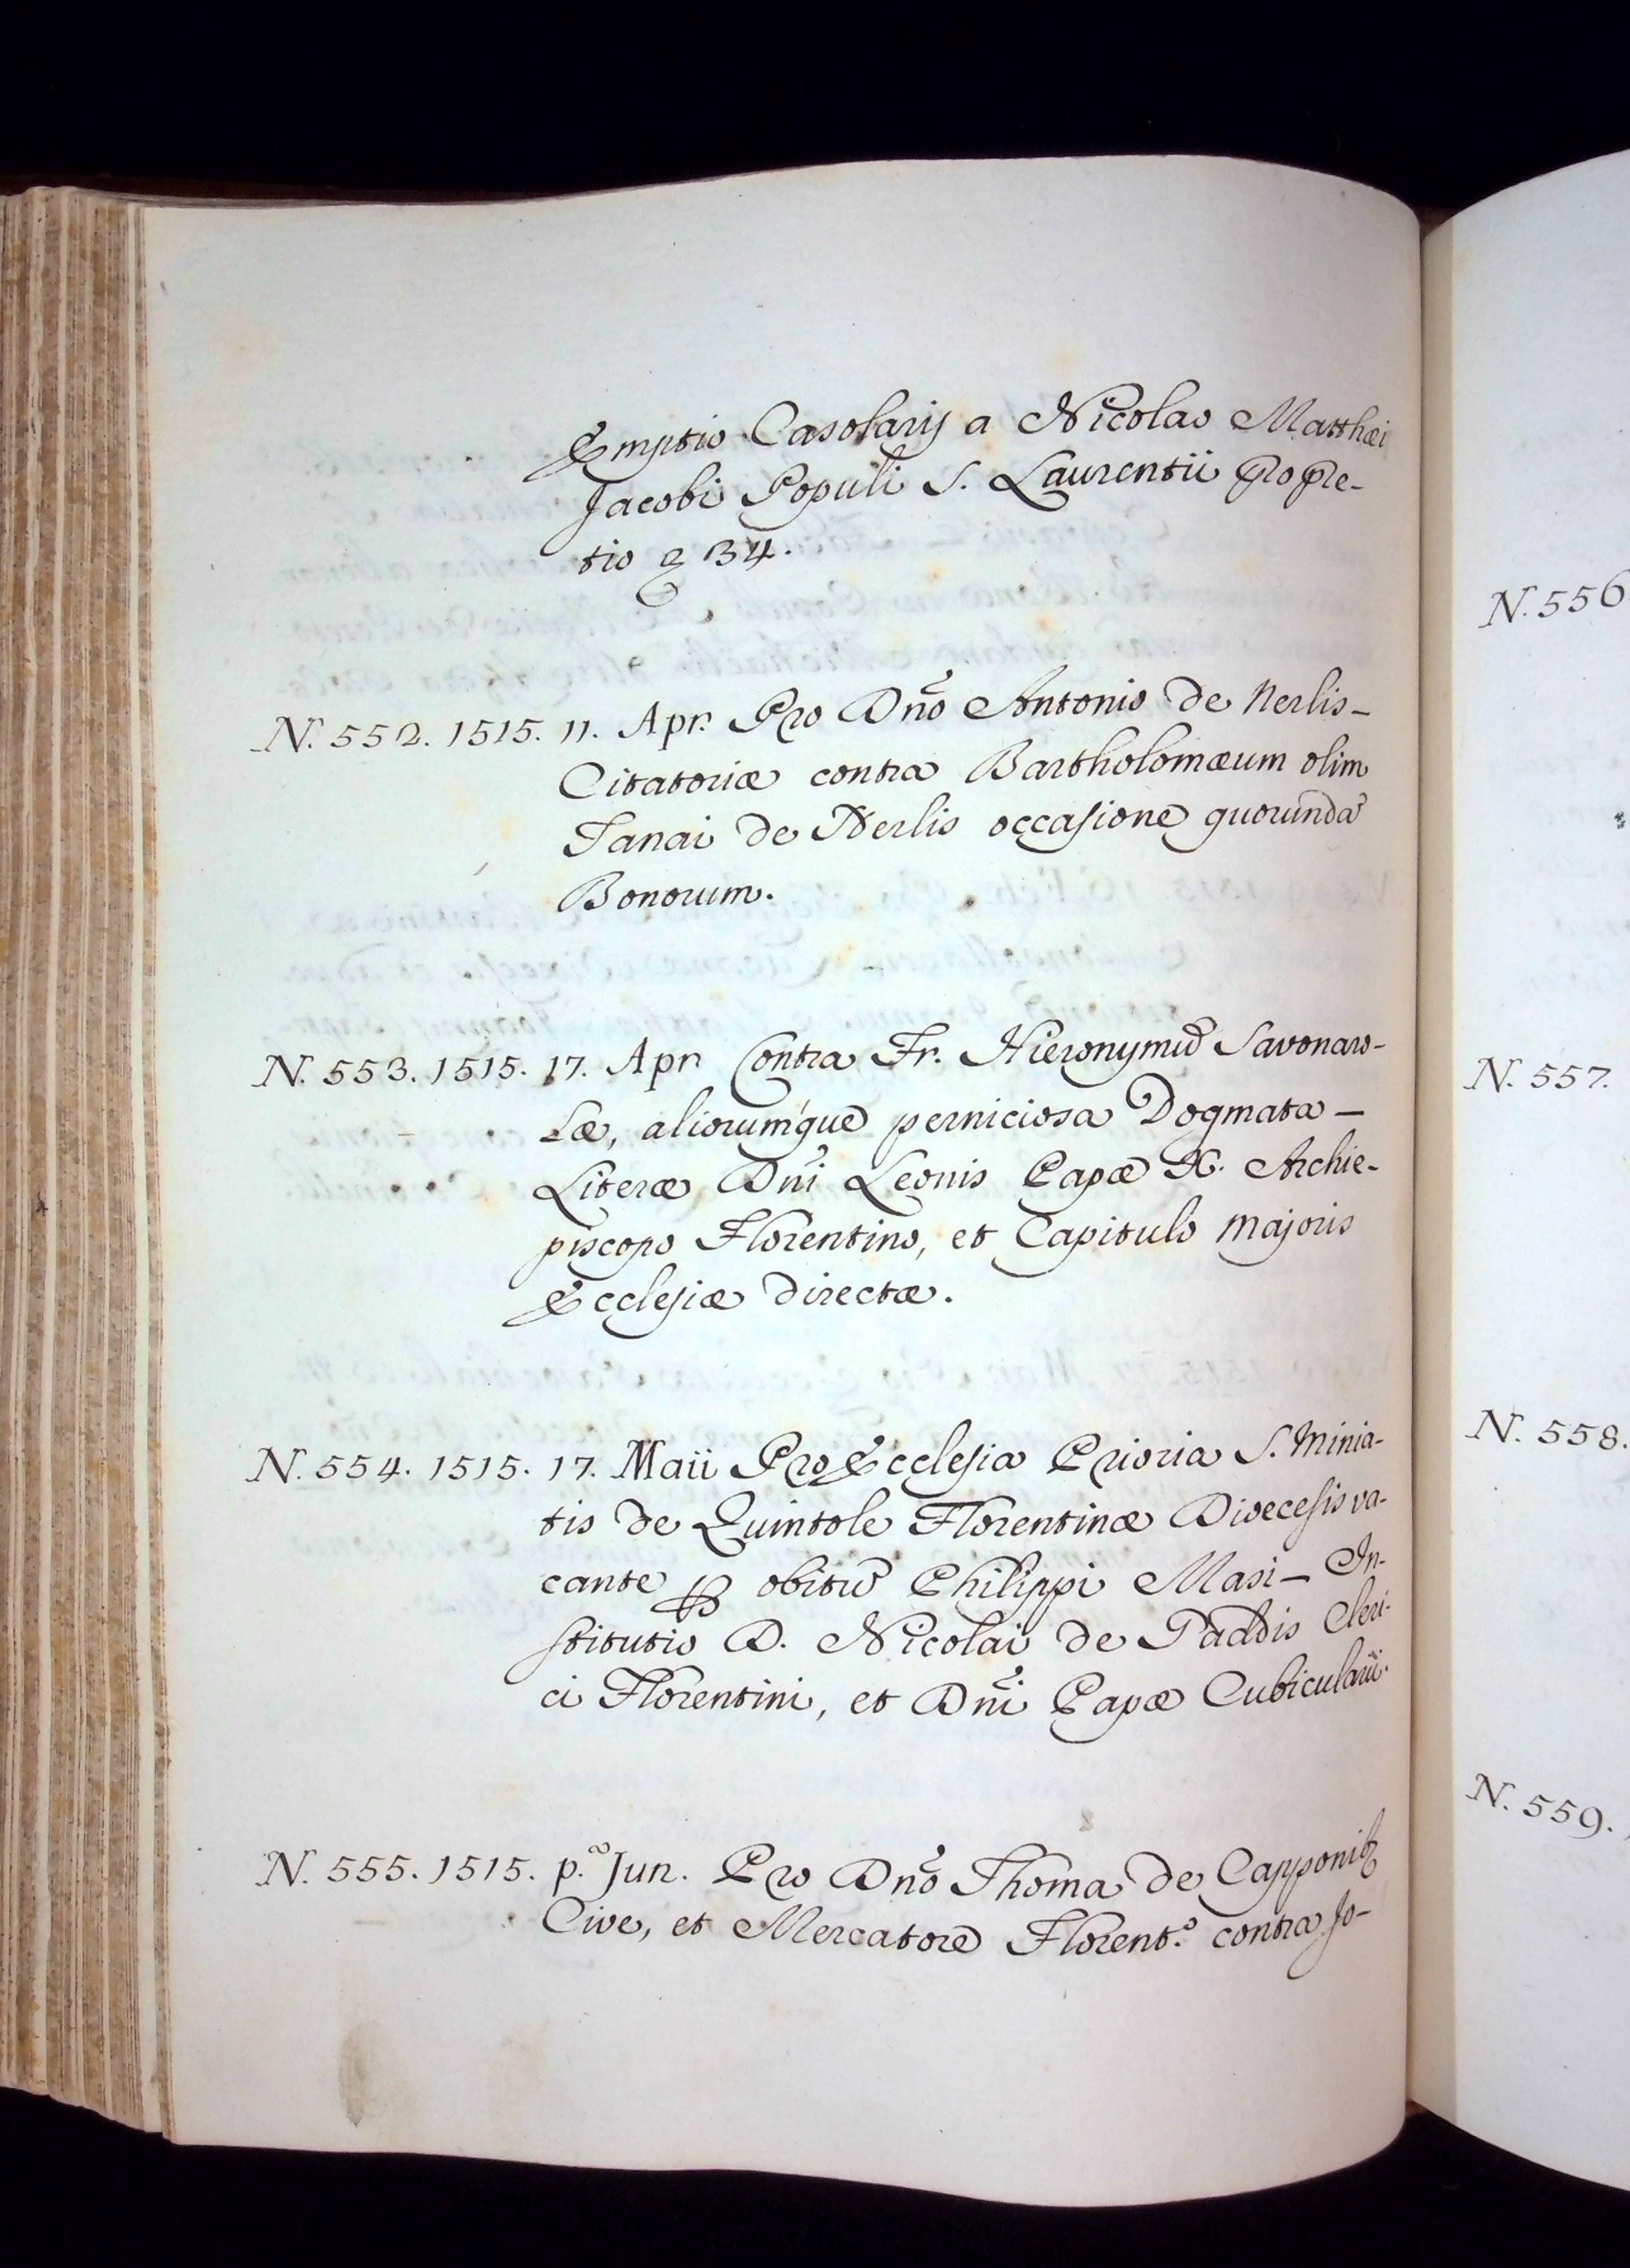 Emptio Casolarij a Nicolao Matthæi
Jacobi Populi S. Laurentii pro pre-
tio 34.
N. 552. 1515. 11. Apr. Pro Dño Antonio de Nerlis –
Citatoriæ contra Bartholomæum olim
Tanai de Nerlis occasione quorundã
Bonorum.
N. 553. 1515. 17. Apr. Contra Fr. Hieronymũ Savonaro-
læ, aliorumque perniciosa Dogmata –
Literæ Dñi Leonis Papæ X. Archie-
piscopo Florentino, et Capitulo Majoris
Ecclesiæ directæ.
N. 554. 1515. 17. Maii Pro Ecclesia Prioria S. Minia-
tis de Quintole Florentinæ Dioecesis va-
cante ꝑ obitũ Philippi Masi – In-
stitutio D. Nicolai de Gaddis Cleri-
ci Florentini, et Dñi Papæ Cubicularii.
N. 555. 1515. p.ª Jun. Pro Dño Thoma de Capponibꝫ
Cive, et Mercatore Florent.º contra Jo-
N. 556
N. 557.
N. 558.
N. 559.